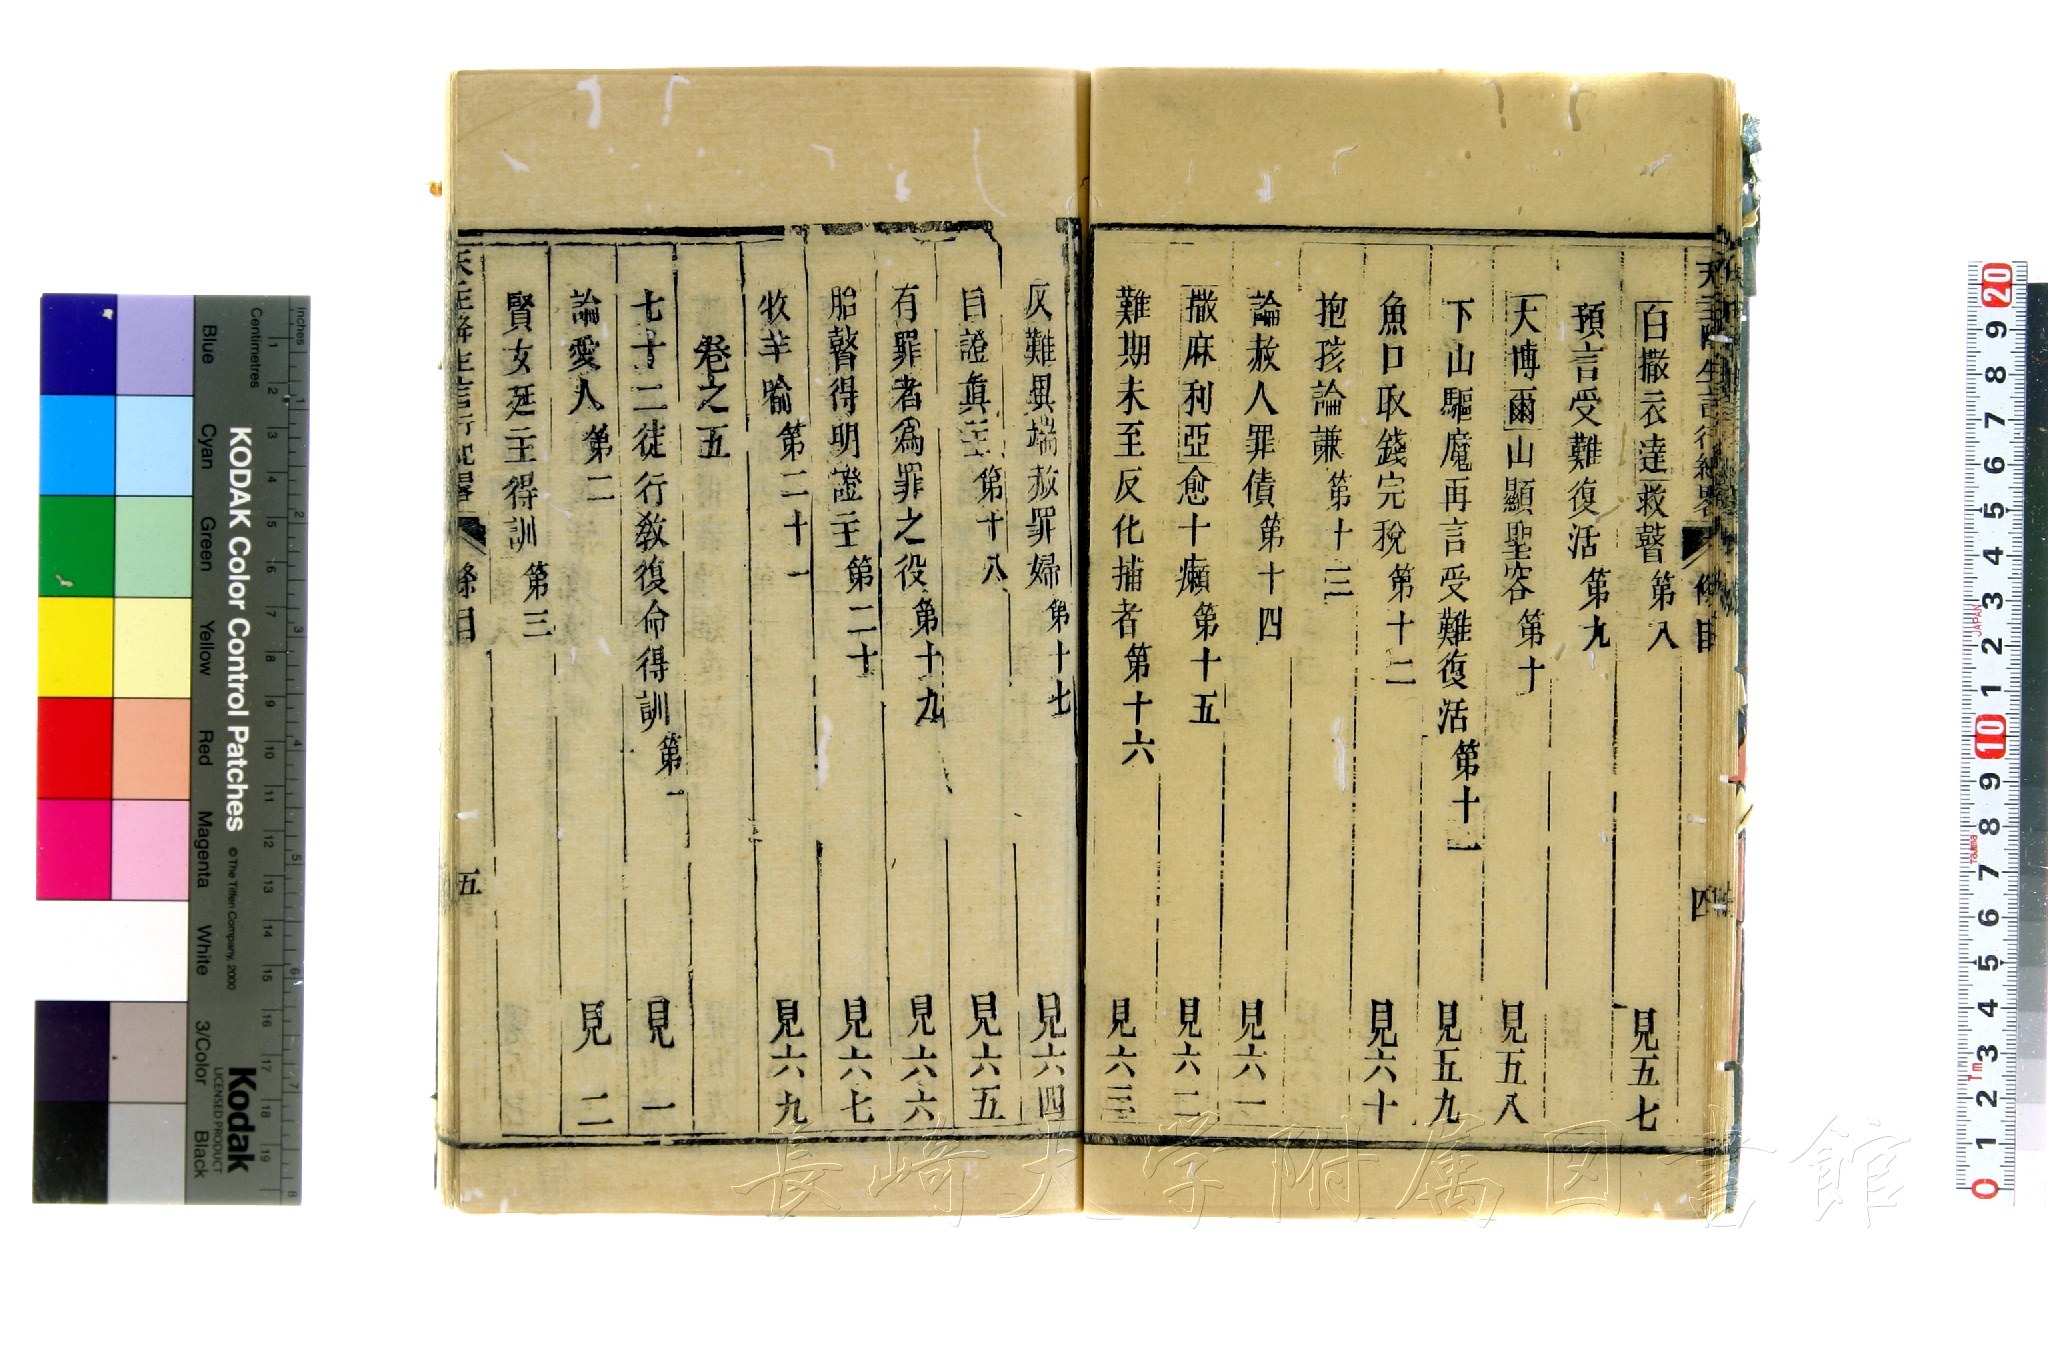 天主降生言行紀畧 條目 四
百撒衣達救瞽 第八 見五七
預言受難復活 第九
大博爾山顯聖容 第十 見五八
下山驅魔再言受難復活 第十一 見五九
魚口取錢完稅 第十二 見六十
抱孩論謙 第十三
論赦人罪債 第十四 見六一
撒麻利亞愈十癩 第十五 見六二
難期未至反化捕者 第十六 見六三
反難異端赦罪婦 第十七 見六四
自證真主 第十八 見六五
有罪者為罪之役 第十九 見六六
胎瞽得明證主 第二十 見六七
牧羊喻 第二十一 見六九
卷之五
七十二徒行教復命得訓 第一 見一
論愛人 第二 見二
賢女延主得訓 第三
天主降生言行紀畧 條目 五
KODAK Color Control Patches
© The Tiffen Company, 2000
Kodak
LICENSED PRODUCT
Inches
Centimetres
Blue
Cyan
Green
Yellow
Red
Magenta
White
3/Color
Black
JAPAN
Tajima
長崎大学附属図書館